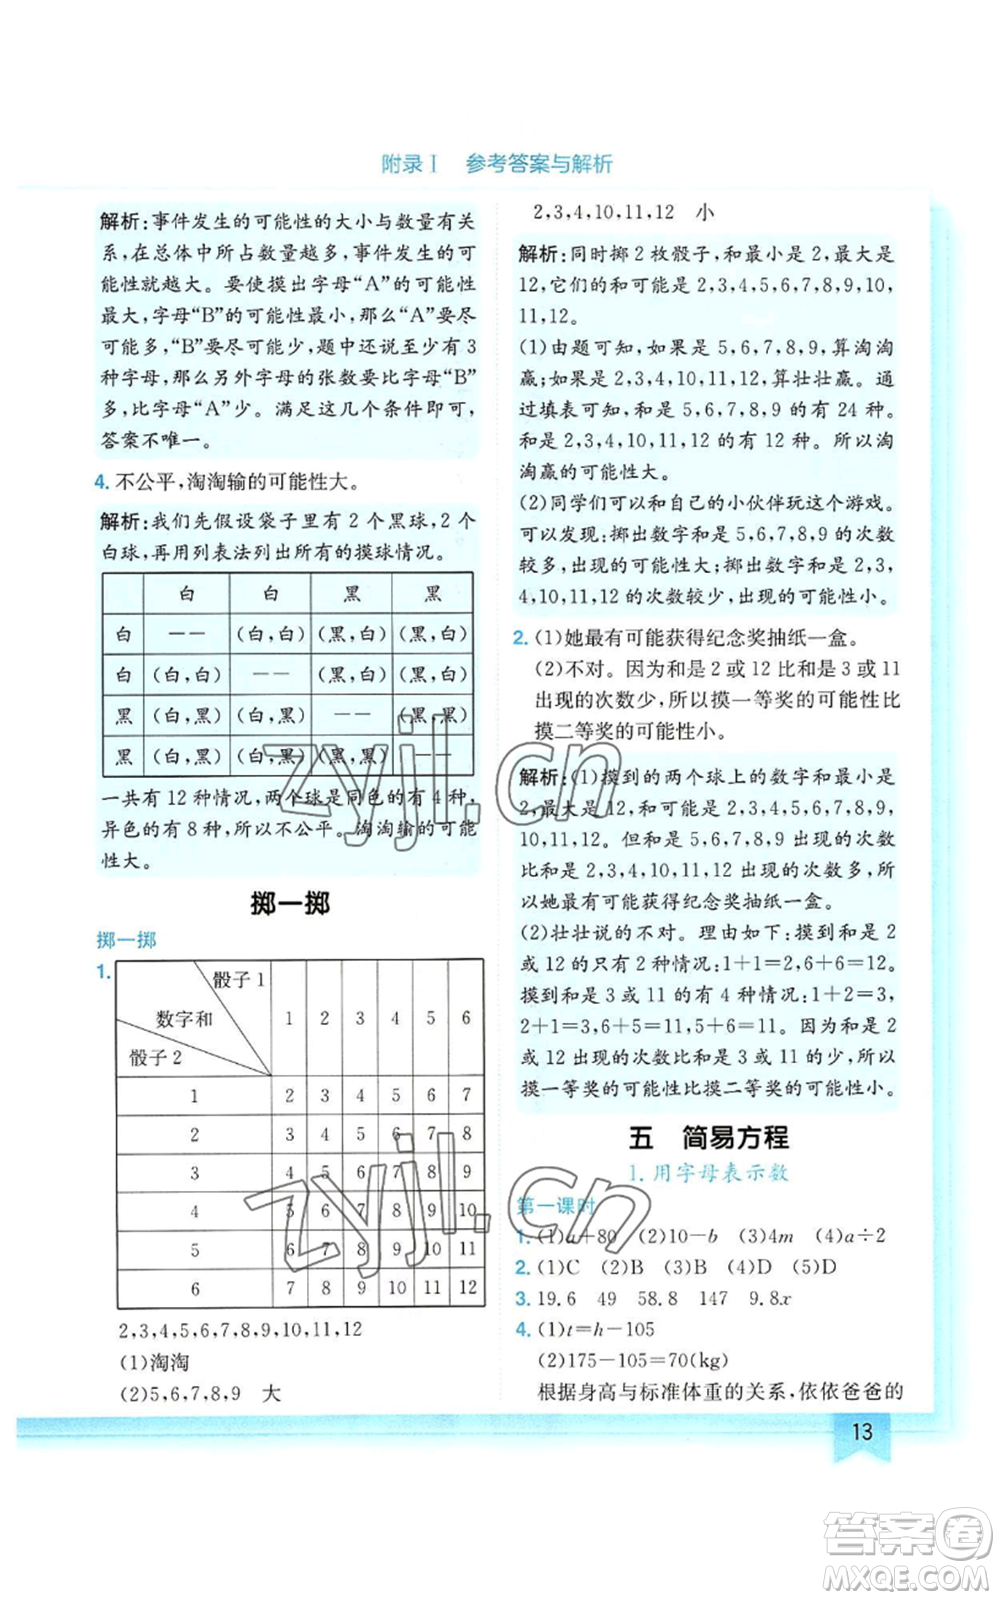 附录Ⅰ 参考答案与解析
解析:事件发生的可能性的大小与数量有关
系,在总体中所占数量越多,事件发生的可能
性就越大。要使摸出字母“A”的可能性
最大,字母“B”的可能性最小,那么“A”要尽
可能多,“B”要尽可能少,题中还说至少有3
种字母,那么另外字母的张数要比字母“B”
多,比字母“A”少。满足这几个条件即可,
答案不唯一。
4. 不公平,淘淘输的可能性大。
解析:我们先假设袋子里有2个黑球,2个
白球,再用列表法列出所有的摸球情况。
白 白 黑 黑
白 —— (白,白) (黑,白) (黑,白)
白 (白,白) —— (黑,白) (黑,白)
黑 (白,黑) (白,黑) —— (黑,黑)
黑 (白,黑) (白,黑) (黑,黑) ——
一共有12种情况,两个球是同色的有4种,
异色的有8种,所以不公平。淘淘输的可能
性大。
掷一掷
掷一掷
1.
骰子1
数字和
骰子2
1 2 3 4 5 6
1 2 3 4 5 6 7
2 3 4 5 6 7 8
3 4 5 6 7 8 9
4 5 6 7 8 9 10
5 6 7 8 9 10 11
6 7 8 9 10 11 12
2,3,4,5,6,7,8,9,10,11,12
(1)淘淘
(2)5,6,7,8,9 大
2,3,4,10,11,12 小
解析:同时掷2枚骰子,和最小是2,最大是
12,它们的和可能是2,3,4,5,6,7,8,9,10,
11,12。
(1)由题可知,如果是5,6,7,8,9,算淘淘
赢;如果是2,3,4,10,11,12,算壮壮赢。通
过填表可知,和是5,6,7,8,9的有24种。
和是2,3,4,10,11,12的有12种。所以淘
淘赢的可能性大。
(2)同学们可以和自己的小伙伴玩这个游戏。
可以发现:掷出数字和是5,6,7,8,9的次数
较多,出现的可能性大;掷出数字和是2,3,
4,10,11,12的次数较少,出现的可能性小。
2. (1)她最有可能获得纪念奖抽纸一盒。
(2)不对。因为和是2或12比和是3或11
出现的次数少,所以摸一等奖的可能性比
摸二等奖的可能性小。
解析:(1)摸到的两个球上的数字和最小是
2,最大是12,和可能是2,3,4,5,6,7,8,9,
10,11,12。但和是5,6,7,8,9出现的次数
比和是2,3,4,10,11,12出现的次数多,所
以她最有可能获得纪念奖抽纸一盒。
(2)壮壮说的不对。理由如下:摸到和是2
或12的只有2种情况:1+1=2,6+6=12。
摸到和是3或11的有4种情况:1+2=3,
2+1=3,5+6=11,6+5=11。因为和是2
或12出现的次数比和是3或11的少,所以
摸一等奖的可能性比摸二等奖的可能性小。
五 简易方程
1.用字母表示数
第一课时
1. (1)a+80 (2)10-b (3)4m (4)a÷2
2. (1)C (2)B (3)B (4)D (5)D
3. 19.6 49 58.8 147 9.8x
4. (1)t=h-105
(2)175-105=70(kg)
根据身高与标准体重的关系,依依爸爸的
13
zyjl.cn
zyjl.cn
答案圈
MXQE.COM